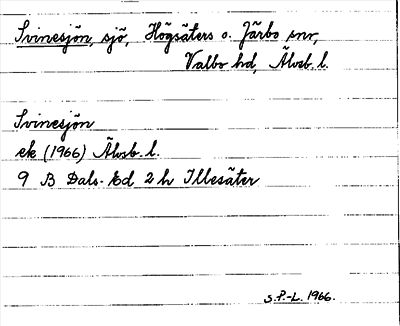 Svinesjön, sjö, Högsäters o. Järbo snr,
Valbo hd, Älvsb. l.
Svinesjön
ek (1966) Älvsb. l.
9 B Dals-Ed 2 h Illesäter
S.P.-L. 1966.